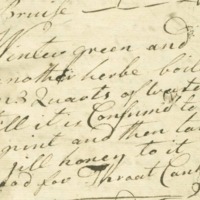 bruise
Winter green and
another herbe boil
Quarts of wat
till it is Consumed to
pint and then ta
Jill honey to it
ood for Throat Cank